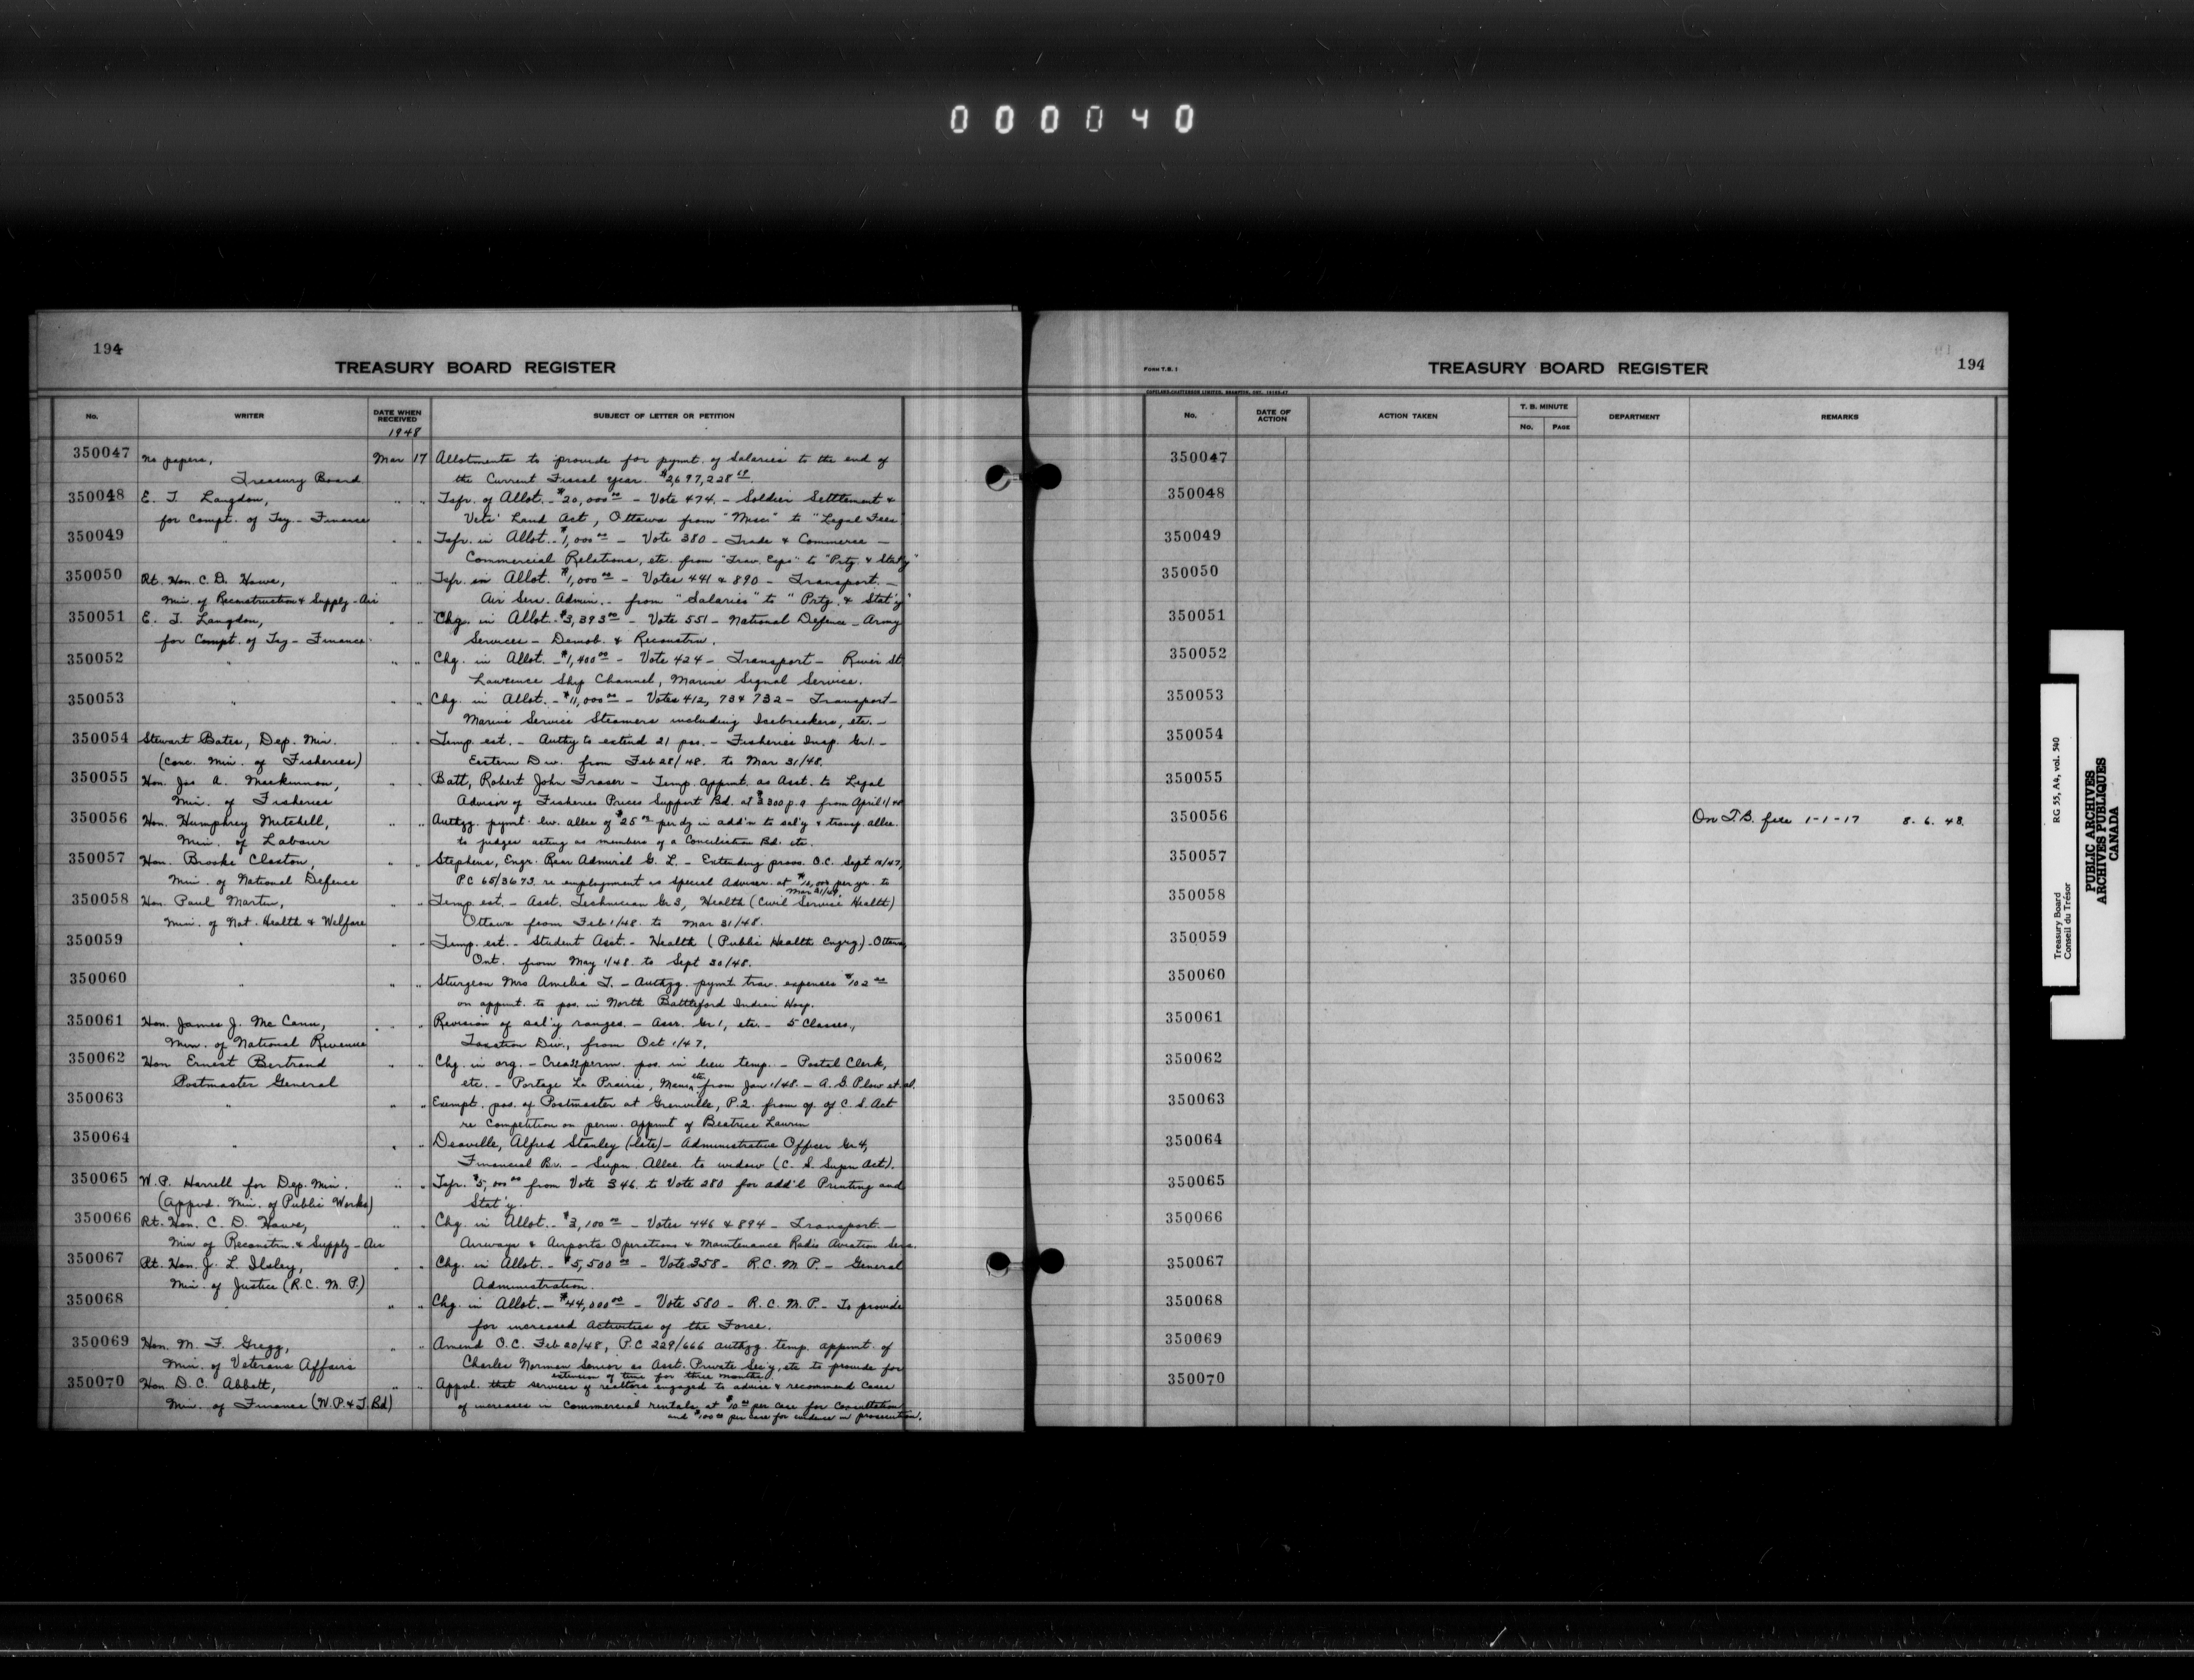 000040
194
TREASURY BOARD REGISTER
No.
WRITER
DATE WHEN RECEIVED
SUBJECT OF LETTER OR PETITION
1948
350047 No papers, Mar 17 Allotments to provide for pymt. of Salaries to the end of
Treasury Board the Current Fiscal Year. $2,697,228
350048 E. T. Langdon, " " Tsfr. of Allot. - $20,000 00 - Vote 474. - Soldier Settlement &
for Compt. of Tsy - Finance Vets' Land Act, Ottawa from "Misc." to "Legal Fees"
350049 " " " Tsfr. in Allot. - $1,000 00 - Vote 380 - Trade & Commerce -
Commercial Relations, etc. from "Trav. Exps" to "Prtg. & Stat'y"
350050 Rt. Hon. C. D. Howe, " " Tsfr. in Allot. $1,000 00 - Votes 441 & 890 - Transport. -
Min. of Reconstruction & Supply - Air Air Serv. Admin. - from "Salaries" to "Prtg. & Stat'y"
350051 E. T. Langdon, " " Chg. in Allot. $3,393 00 - Vote 551 - National Defence - Army
for Compt. of Tsy - Finance. Services - Demob. & Reconstrn.
350052 " " " Chg. in Allot. - $1,400 00 - Vote 424 - Transport - River St.
Lawrence Ship Channel, Marine Signal Service.
350053 " " " Chg. in Allot. - $11,000 00 - Votes 412, 73 & 732 - Transport -
Marine Service Steamers including Icebreakers, etc. -
350054 Stewart Bates, Dep. Min. " " Temp. est. - Authy to extend 21 pos. - Fisheries Insp. Gr 1. -
(Conc. Min. of Fisheries) Eastern Div. from Feb 28/48. to Mar 31/48.
350055 Hon. Jas A. MacKinnon, " " Batt, Robert John Fraser - Temp. appmt. as Asst. to Legal
Min. of Fisheries Advisor of Fisheries Prices Support Bd. at $3300 p.a from April 1/48
350056 Hon. Humphrey Mitchell, " " Authzg. pymt. liv. allce of $25 00 per dy in add'n to sal'y & transp. allce.
Min. of Labour to judges acting as members of a Conciliation Bd. etc.
350057 Hon. Brooke Claxton, " " Stephens, Engr. Rear Admiral G. L. - Extending provs. O.C. Sept 10/47,
Min. of National Defence P.C 65/3673 re employment as Special Adviser. at $12,000 per yr. to
Mar 31/49.
350058 Hon. Paul Martin, " " Temp. est. - Asst. Technician Gr 3, Health (Civil Service Health)
Min. of Nat. Health & Welfare Ottawa from Feb 1/48. to Mar 31/48.
350059 " " " Temp. est. - Student Asst. - Health (Public Health Engrg) - Ottawa,
Ont. from May 1/48. to Sept 30/48.
350060 " " " Sturgeon Mrs Amelia T. - Authzg. pymt trav. expenses $102
on appmt. to pos. in North Battleford Indian Hosp.
350061 Hon. James J. McCann, " " Revision of sal'y ranges. - Assr. Gr 1, etc. - 5 Classes.,
Min. of National Revenue Taxation Div., from Oct 1/47.
350062 Hon Ernest Bertrand " " Chg. in org. - Creatg perm. pos. in lieu temp. - Postal Clerk,
Postmaster General etc. - Portage La Prairie, Man. etc. from Jan 1/48. - A. G. Plow et al.
350063 " " " Exempt. pos. of Postmaster at Grenville, P.Q. from op. of C. S. Act
re Competition on perm. appmt of Beatrice Laurin
350064 " " " Deaville, Alfred Stanley (late) - Administrative Officer Gr. 4,
Financial Br. - Supn. Allce. to widow (C. S. Supn Act).
350065 W. P. Harrell for Dep. Min. " " Tsfr. $5,000 00 from Vote 346. to Vote 280 for add'l Printing and
(Appvd. Min. of Public Works) Stat'y.
350066 Rt. Hon. C. D. Howe, " " Chg. in Allot. - $3,100 00 - Votes 446 & 894 - Transport -
Min of Reconstrn. & Supply - Air Airways & Airports Operations & Maintenance Radio Aviation Serv.
350067 Rt. Hon. J. L. Ilsley, " " Chg. in Allot. - $5,500 00 - Vote 358 - R.C. M. P. - General
Min. of Justice (R.C. M. P.) Administration.
350068 " " " Chg. in Allot. - $44,000 00 - Vote 580 - R.C. M. P. - To provide
for increased Activities of the Force.
350069 Hon. M. F. Gregg, " " Amend O.C. Feb 20/48, P.C 229/666 authzg. temp. appmt. of
Min. of Veterans Affairs Charles Norman Senior as Asst. Private Sec'y, etc to provide for
extension of time for three months.
350070 Hon. D. C. Abbott, " " Appvl. that services of realtors engaged to advise & recommend cases
Min. of Finance (W.P. & T. Bd) of increases in Commercial rentals, at $10 00 per case for Consultation
and $100 00 per case for evidence in prosecution.
FORM T.B. 1
TREASURY BOARD REGISTER
194
No.
DATE OF ACTION
ACTION TAKEN
T. B. MINUTE
No.
PAGE
DEPARTMENT
REMARKS
350047
350048
350049
350050
350051
350052
350053
350054
350055
350056 On T.B. file 1-1-17 8. 6. 48.
350057
350058
350059
350060
350061
350062
350063
350064
350065
350066
350067
350068
350069
350070
Treasury Board RG 55, A4, vol. 540
Conseil du Trésor
PUBLIC ARCHIVES
ARCHIVES PUBLIQUES
CANADA